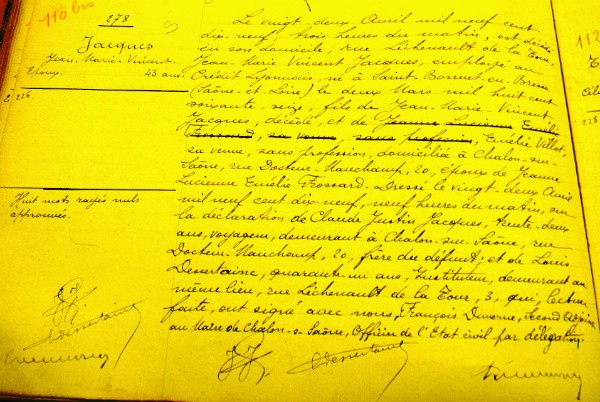 110 bis
278
Jacques
Jean-Marie-Vincent
Epoux. 43 ans.
E 228
Huit mots rayés nuls
approuvés.
Le vingt-deux Avril mil neuf cent
dix-neuf, trois heures du matin, est décédé
en son domicile, rue Léchenault de la Tour,
Jean Marie Vincent Jacques, employé au
Crédit Lyonnais, né à Saint-Bonnet-en-Bresse
(Saône-et-Loire) le deux Mars mil huit cent
soixante-seize, fils de Jean-Marie-Vincent
Jacques, décédé, et de Jeanne Lucienne Emélie
Frossard, sa veuve sans profession, Emélie Villot,
sa veuve, sans profession, domiciliée à Chalon-sur-
Saône, rue Docteur-Mauchamp, 20, époux de Jeanne
Lucienne Emélie Frossard. Dressé le vingt-deux Avril
mil neuf cent dix-neuf, neuf heures du matin, sur
la déclaration de Claude Justin Jacques, trente-deux
ans, voyageur, demeurant à Chalon-sur-Saône, rue
Docteur-Mauchamp, 20, frère du défunt; et de Louis
Dessertaine, quarante-un ans, Instituteur, demeurant au
même lieu, rue Léchenault de la Tour, 3, qui, lecture
faite, ont signé avec nous, François Second Adjoint
au Maire de Chalon-s-Saône, Officier de l'Etat civil par délégation.
JJ
LDessertaine
JJ
LDessertaine
112
228